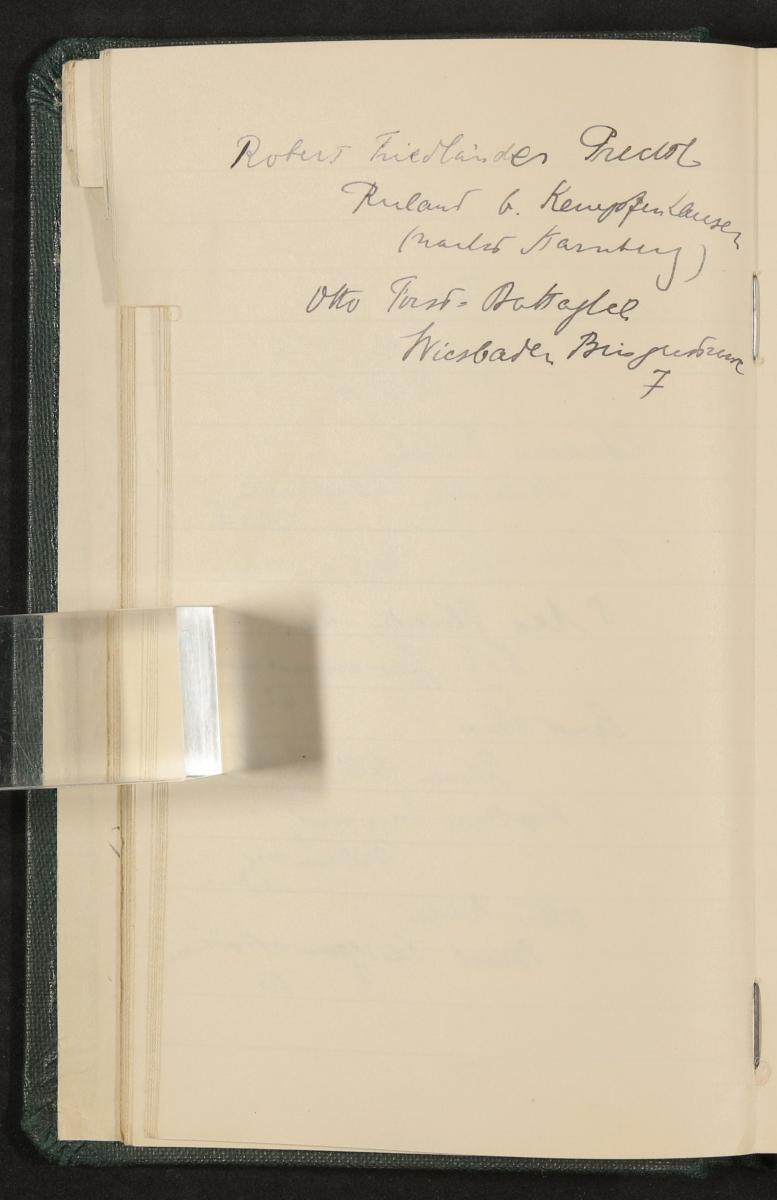 Robert Friedländer Prechtl
Ruland b. Kempfenhausen
(nächst Starnberg)
Otto Forst-Battaglia
Wiesbaden
7